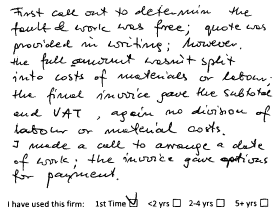 First call out to determin the
fault & work was free; quote was
provided in writing; however.
the full amount wasn't split
into costs of materials or labour.
the final invoice gave the subtotal
and VAT, again no division of
labour or material costs.
I made a call to arrange a date
of work; the invoice gave options
for payment.
I have used this firm: 1st Time ☑ <2 yrs ☐ 2-4 yrs ☐ 5+ yrs ☐